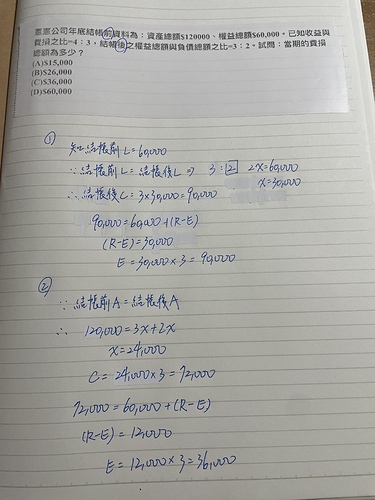 憲憲公司年底結帳前資料為：資產總額$120000、權益總額$60,000。已知收益與
費損之比=4：3，結帳後之權益總額與負債總額之比=3：2。試問：當期的費損
總額為多少？
(A)$15,000
(B)$26,000
(C)$36,000
(D)$60,000
①
知結帳前L=60,000
∵結帳前L=結帳後L ⇒ 3:2 2x=60,000
x=30,000
∴結帳後C=3×30,000=90,000
90,000=60,000+(R-E)
(R-E)=30,000
E=30,000×3=90,000
②
∵結帳前A=結帳後A
∴ 120,000=3x+2x
x=24,000
C=24,000×3=72,000
72,000=60,000+(R-E)
(R-E)=12,000
E=12,000×3=36,000